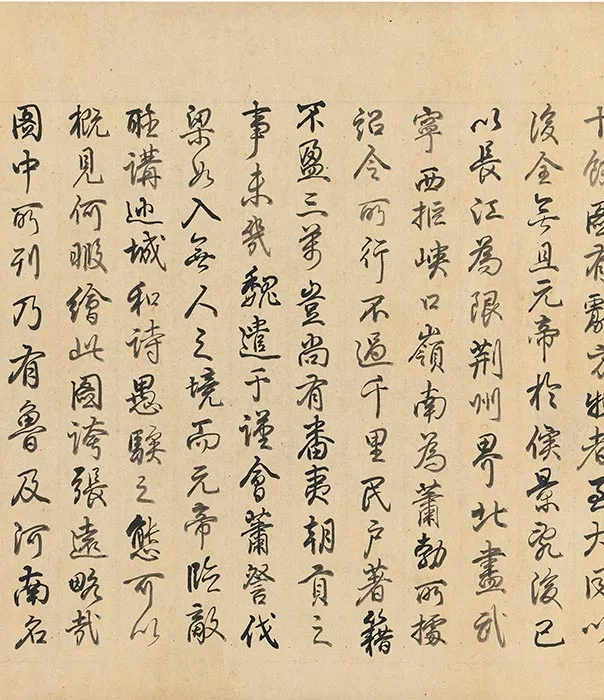 十餘國有獻方物者至大同以
後全無且元帝於侯景亂後已
以長江為限荊州界北盡武
寧西拒峽口嶺南為蕭勃所據
詔令所行不過千里民戶著籍
不盈三萬豈尚有番夷朝貢之
事未幾魏遣于謹會蕭詧伐
梁如入無人之境而元帝臨敵
聽講巡城和詩愚騃之態可以
概見何暇繪此圖誇張遠略哉
圖中所列乃有魯及河南名